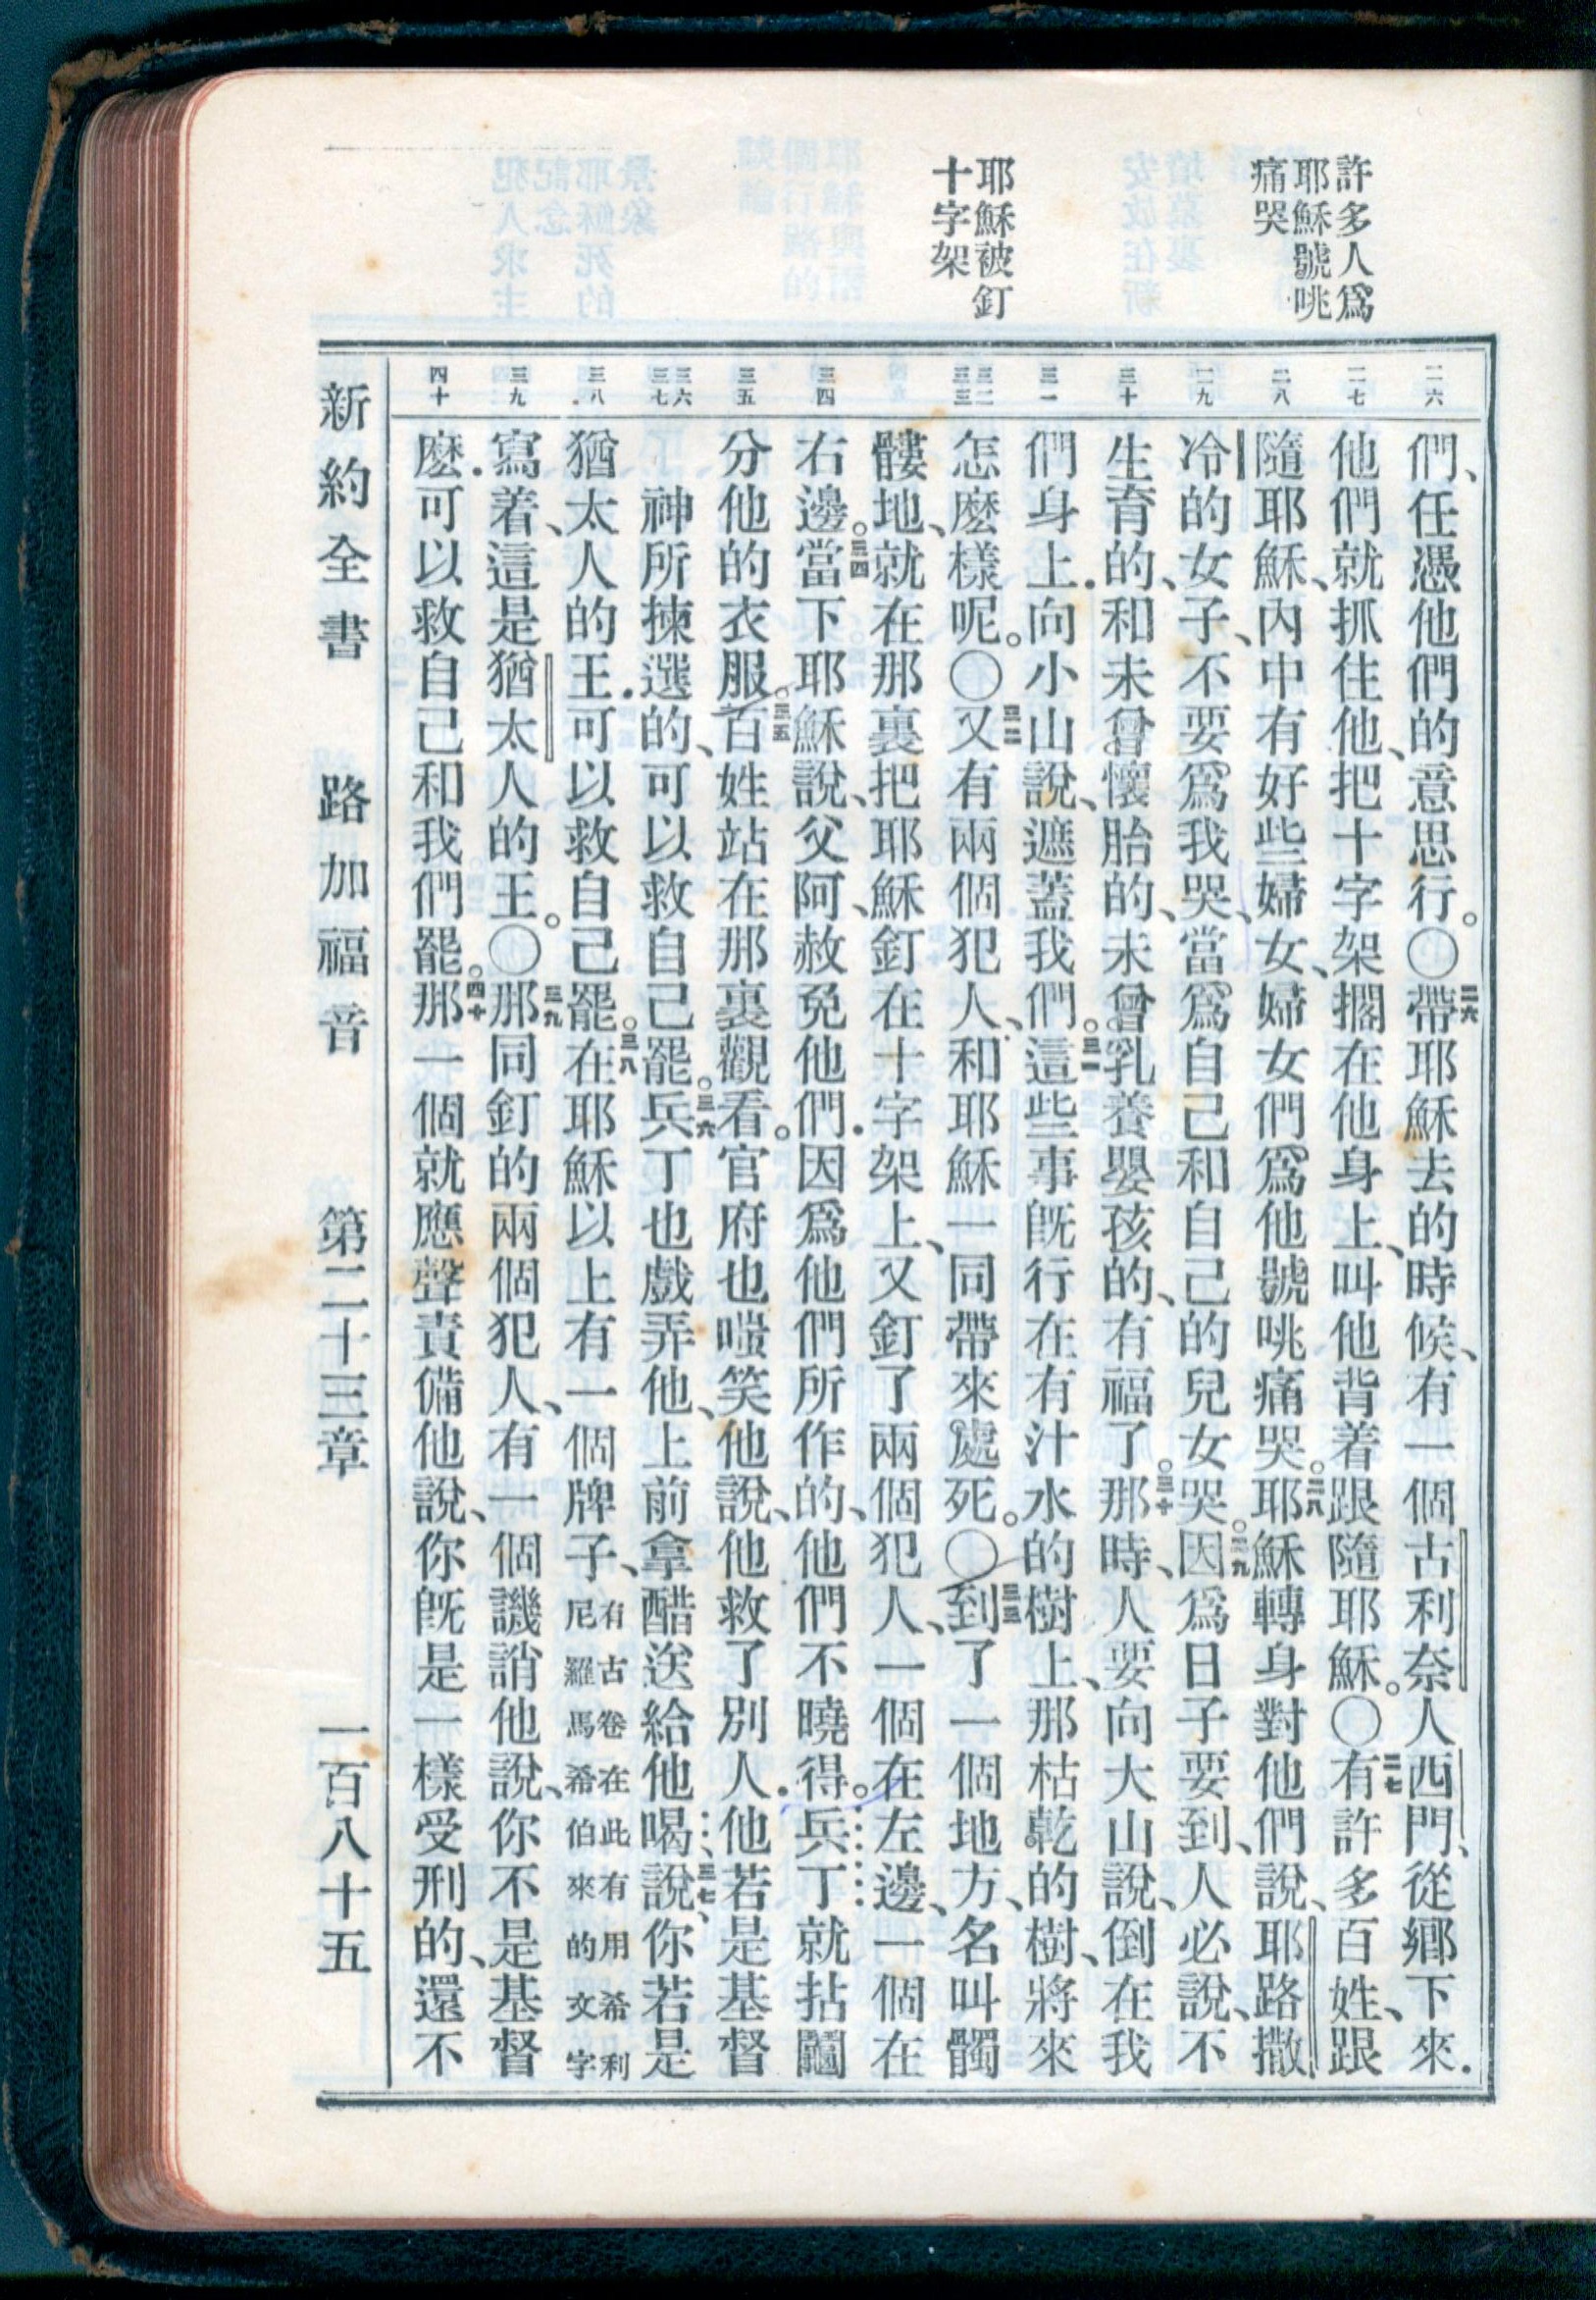 許多人爲
耶穌號咷
痛哭
耶穌被釘
十字架
二六
二七
二八
二九
三十
三一
三二
三三
三四
三五
三六
三七
三八
三九
四十
們、任憑他們的意思行。〇二六帶耶穌去的時候、有一個古利奈人西門、從鄉下來．
他們就抓住他、把十字架擱在他身上、叫他背着跟隨耶穌。〇二七有許多百姓、跟
隨耶穌、內中有好些婦女、婦女們爲他號咷痛哭。二八耶穌轉身對他們說、耶路撒
冷的女子、不要爲我哭、當爲自己和自己的兒女哭。二九因爲日子要到、人必說、不
生育的、和未曾懷胎的、未曾乳養嬰孩的、有福了。三十那時、人要向大山說、倒在我
們身上．向小山說、遮蓋我們。三一這些事旣行在有汁水的樹上、那枯乾的樹、將來
怎麼樣呢。〇三二又有兩個犯人、和耶穌一同帶來處死。〇三三到了一個地方、名叫髑
髏地、就在那裏把耶穌釘在十字架上、又釘了兩個犯人、一個在左邊、一個在
右邊。三四當下耶穌說、父阿、赦免他們．因爲他們所作的、他們不曉得。兵丁就拈鬮
分他的衣服。三五百姓站在那裏觀看。官府也嗤笑他說、他救了別人．他若是基督
神所揀選的、可以救自己罷。三六兵丁也戲弄他、上前拿醋送給他喝、三七說、你若是
猶太人的王．可以救自己罷。三八在耶穌以上有一個牌子、有古卷在此有用希利尼羅馬希伯來的文字
寫着、這是猶太人的王。〇三九那同釘的兩個犯人、有一個譏誚他說、你不是基督
麼．可以救自己和我們罷。四十那一個就應聲責備他說、你旣是一樣受刑的、還不
新約全書 路加福音 第二十三章 一百八十五